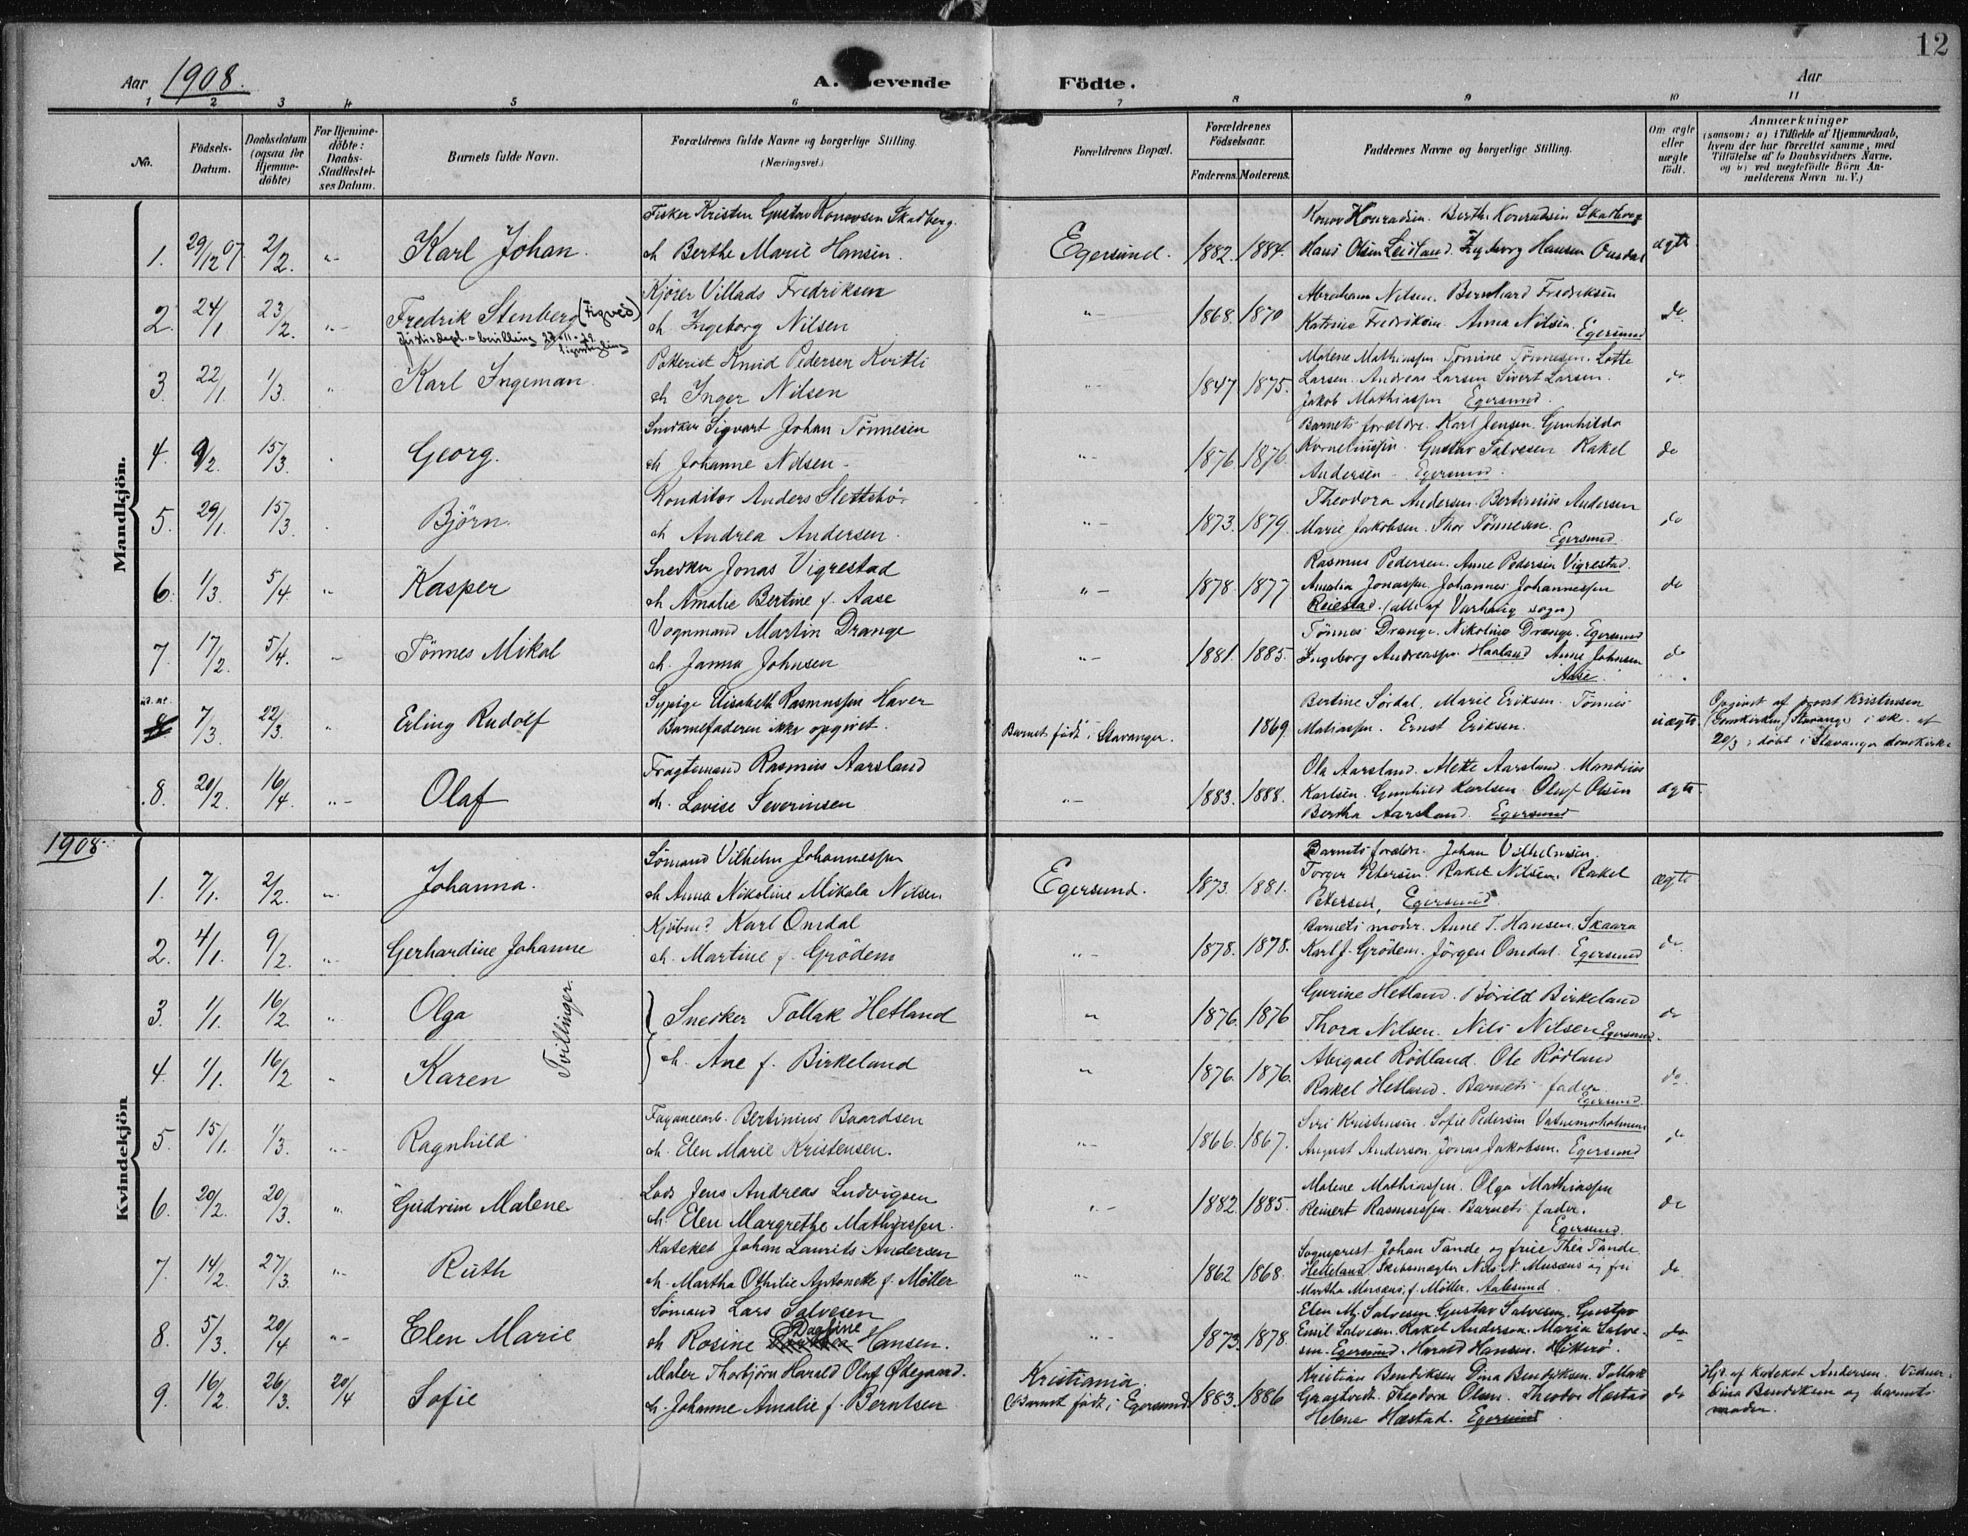 12
Aar 1908. A. Levende Födte. Aar
1 2 3 4 5 6 7 8 9 10 11
No.
Födsels-Datum.
Daabsdatum (ogsaa for Hjemme-döbte)
For Hjemme-döbte: Daabs-Stadfæstel-ses Datum.
Barnets fulde Navn.
Forældrenes fulde Navne og borgerlige Stilling (Næringsvei.)
Forældrenes Bopæl.
Forældrenes Födselsaar.
Faderens. Moderens.
Faddernes Navne og borgerlige Stilling.
Om ægte eller uægte födt.
Anmærkninger
(saasom: a) i Tilfælde af Hjemmedaab, hvem der har forrettet samme, med Tilföielse af to Daabsvidners Navne, og b) ved uægtefödte Börn Anmelderens Navn m. V.)
Mandkjön.
Fisker Kristen Gustav Konovsen Skadberg.
1. 29/12 07. 2/2. Karl Johan. Berthe Marie Hansen. Egersund. 1882. 1884. Hans Olsen Leidland. Ingeborg Hansen ægte
Kjörer Villads Fredriksen
Abraham Nilsen. Bernhard Fredriksen
2. 24/1 23/2. Fredrik Stenberg (Tigvéd) Ingeborg Nilsen 1868. 1870 Katrine Fredriksen Anna Nilsen. Egersund do.
Knud Pedersen
Malene Mathiassen Tomine Tönnesen. Lotte
3. 22/1. 1/3. Karl Ingeman. Inger Nilsen 1847. 1875. Larsen. Andreas Larsen Sivert Larsen. do
Jakob Mathiassen Egersund.
Snedker Sigvart Johan Tönnesen
Barnets forældre. Karl Jensen. Gunhilda
4. 9/2. 15/3. Georg. Johanne Nilsen 1876. 1876. Korneliussen. Gustav Salvesen Rakel do
Andersen Egersund.
Konditor Anders Slettebö
Theodora Andersen. Bertinius Andersen
5. 29/1. 15/3. Björn. Andrea Andersen. 1873. 1879. Marie Jakobsen. Thor Tönnesen. do
Egersund.
Snedker Jonas Vigrestad
Rasmus Pedersen. Anne Pedersen Vigrestad.
6. 1/3. 5/4. Kasper Amalie Bertine f. Aase 1878. 1877 Amalia Jonassen. Johannes Johannessen do
Reiestad. (alle af Varhaug sogn)
Vognmand Martin Drange
Tönnes Drange. Nikoline Drange. Egersund
7. 17/2. 5/4. Tönnes Mikal Janna Johnsen 1881. 1885. Ingeborg Andreassen Haaland Anne Johnsen do
Aase.
Sypige Elisabeth Rasmussen Haver
Bertine Sördal. Marie Eriksen. Tönnes
7/3. 22/3. Erling Rudolf Barnefaderen ikke opgivet. Barnet födt i Stavanger. 1869 Ernst Eriksen. uægte
Opgivet af provst Kristensen (Domkirken, Stavanger) i sk. af 20/3; döbt i Stavanger domkirke
Fragtemand Rasmus Aarsland
Ola Aarsland. Mette Aarsland. Mandius
8. 20/2. 16/4. Olaf Lovise Severinsen 1883. 1888. Karlsen. Gunhild Karlsen. Oluf Olsen ægte.
Bertha Aarsland. Egersund
1908.
Kvindekjön
Sömand Vilhelm Johannessen
Barnets forældre. Johan Vilhelmsen.
1. 7/1. 2/2. Johanna. Anna Nikoline Mikala Nilsen Egersund. 1873. 1881. Torger Petersen. Rakel Nilsen. Rakel ægte
Petersen, Egersund.
Kjöbmd Karl Omdal
Barnets moder. Anne T. Hansen. Skaara
2. 4/1. 9/2. Gerhardine Johanne Martine f. Grödem 1878. 1878. Karl J. Grödem. Jörgen Omdal. Egersund do.
3. 1/1. 16/2. Olga Tvillinger. Snedker Tollak Hetland 1876. 1876
Gurine Hetland. Bövild Birkeland
Thora Nilsen. Nils Nilsen Egersund. do
4. 1/1. 16/2 Karen Ane f. Birkeland 1876. 1876.
Abigael Rödland. Ole Rödland
Rakel Hetland. Barnets fader. do.
Egersund.
Fayancearb. Bertinius Baardsen
Siri Kristensen. Sofie Pedersen Vatnemoholmen
5. 15/1. 1/3. Ragnhild Elen Marie Kristensen. 1866. 1867. August Anderson Jonas Jakobsen. Egersund do
Lods Jens Andreas Ludvigsen
Malene Mathiassen. Olga Mathiassen
6. 20/2. 20/3. Gudrun Malene Elen Margrethe Mathiassen. 1882. 1885. Reinert Rasmussen. Barnets fader. do
Egersund.
Kateket Johan Laurits Andersen
Sogneprest Johan Tande og frue Thea Tande
7. 14/2. 27/3. Ruth Martha Othilie Antonette f. Møller 1862 1868. Helleland. Skibsmægler Nils N. Musæus og fru do
Martha Musæus f. Møller. Aalesund
Sömand Lars Salvesen
Elen M. Salvesen Gustav Salvesen. Gustav
8. 5/3. 20/4 Elen Marie Rosine Dagfine Hansen. 1873. 1878. Emil Salvesen. Rakel Anderson. Maria Salve- do
sen. Egersund. Harald Hansen. Hitterö.
Maler Thorbjörn Harald Olaf Ødegaard.
Kristian Bendiksen Dina Bendiksen. Tollak
9. 16/2. 26/3. 20/4 Sofie Johanne Amalie f. Berntsen. Kristiania. (Barnet födt i Egersund) 1883. 1886 Theodora Olsen. Theodor Hæstad do
Helene Hæstad. Egersund.
Hjd. af kateket Andersen. Vidner: Dina Bendiksen og barnets moder.